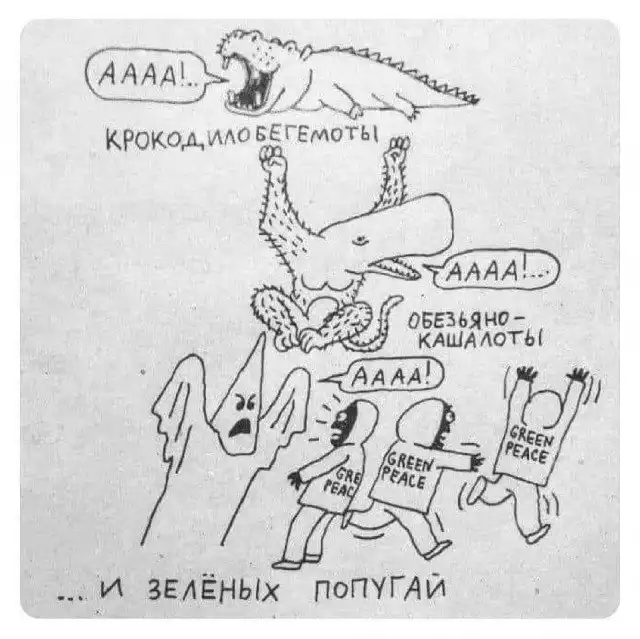 АААА!..
КРОКОДИЛОБЕГЕМОТЫ
АААА!...
ОБЕЗЬЯНО-
КАШАЛОТЫ
АААА!
GRE
PEAC
GREEN
PEACE
GREEN
PEACE
... И ЗЕЛЁНЫХ ПОПУГАЙ